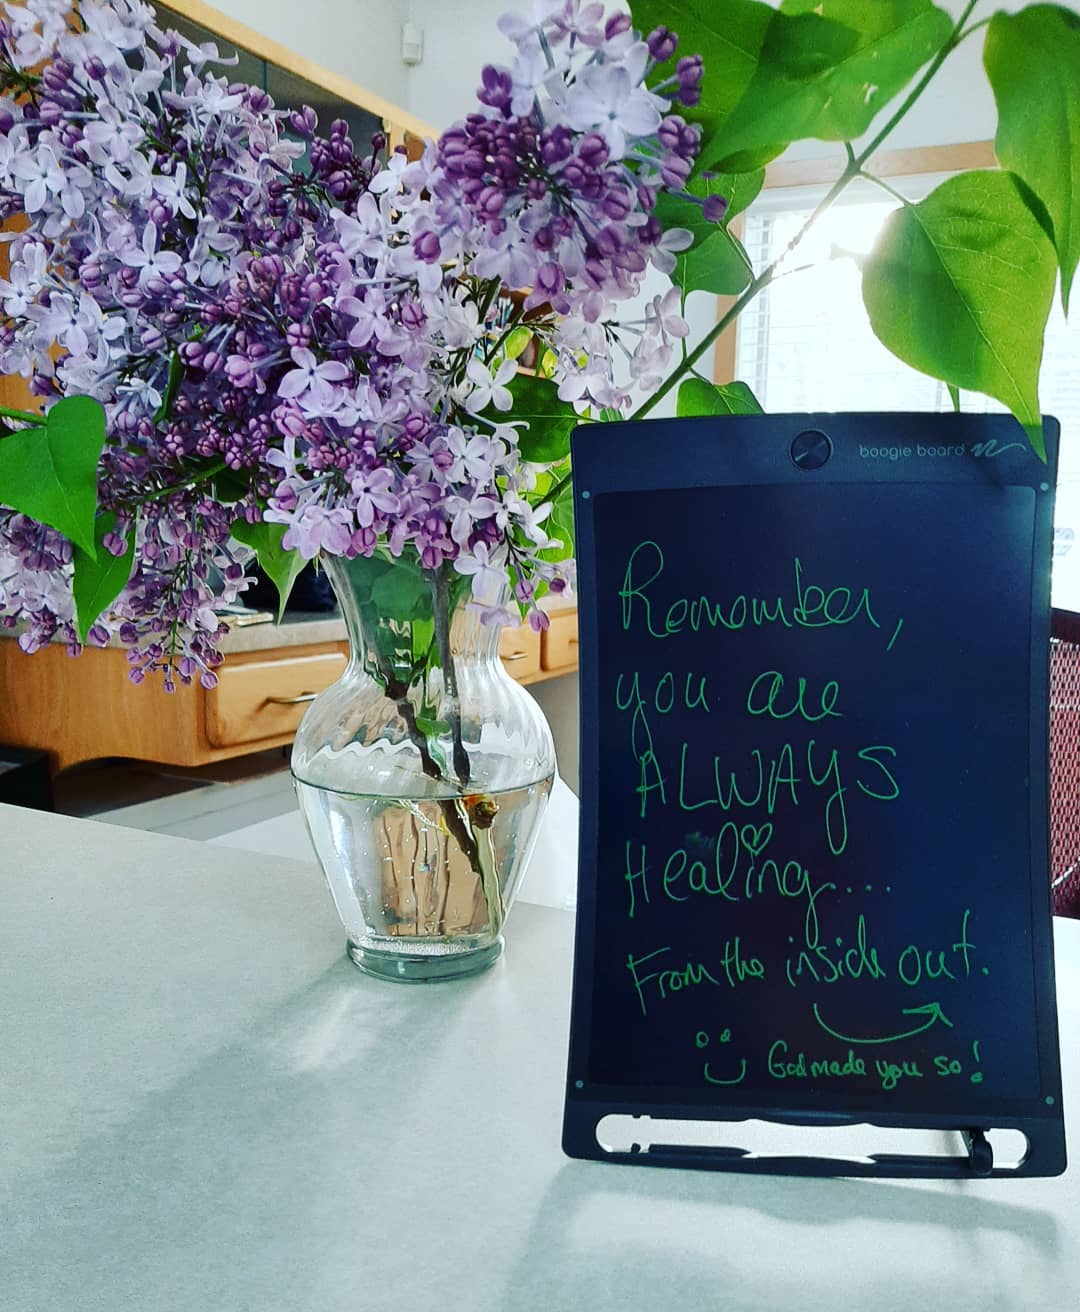 boogie board
Remember,
you are
ALWAYS
Healing....
From the inside out.
God made you so!